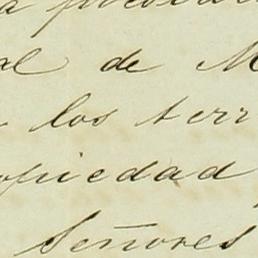 al de M
los terr
opiedad
Señores